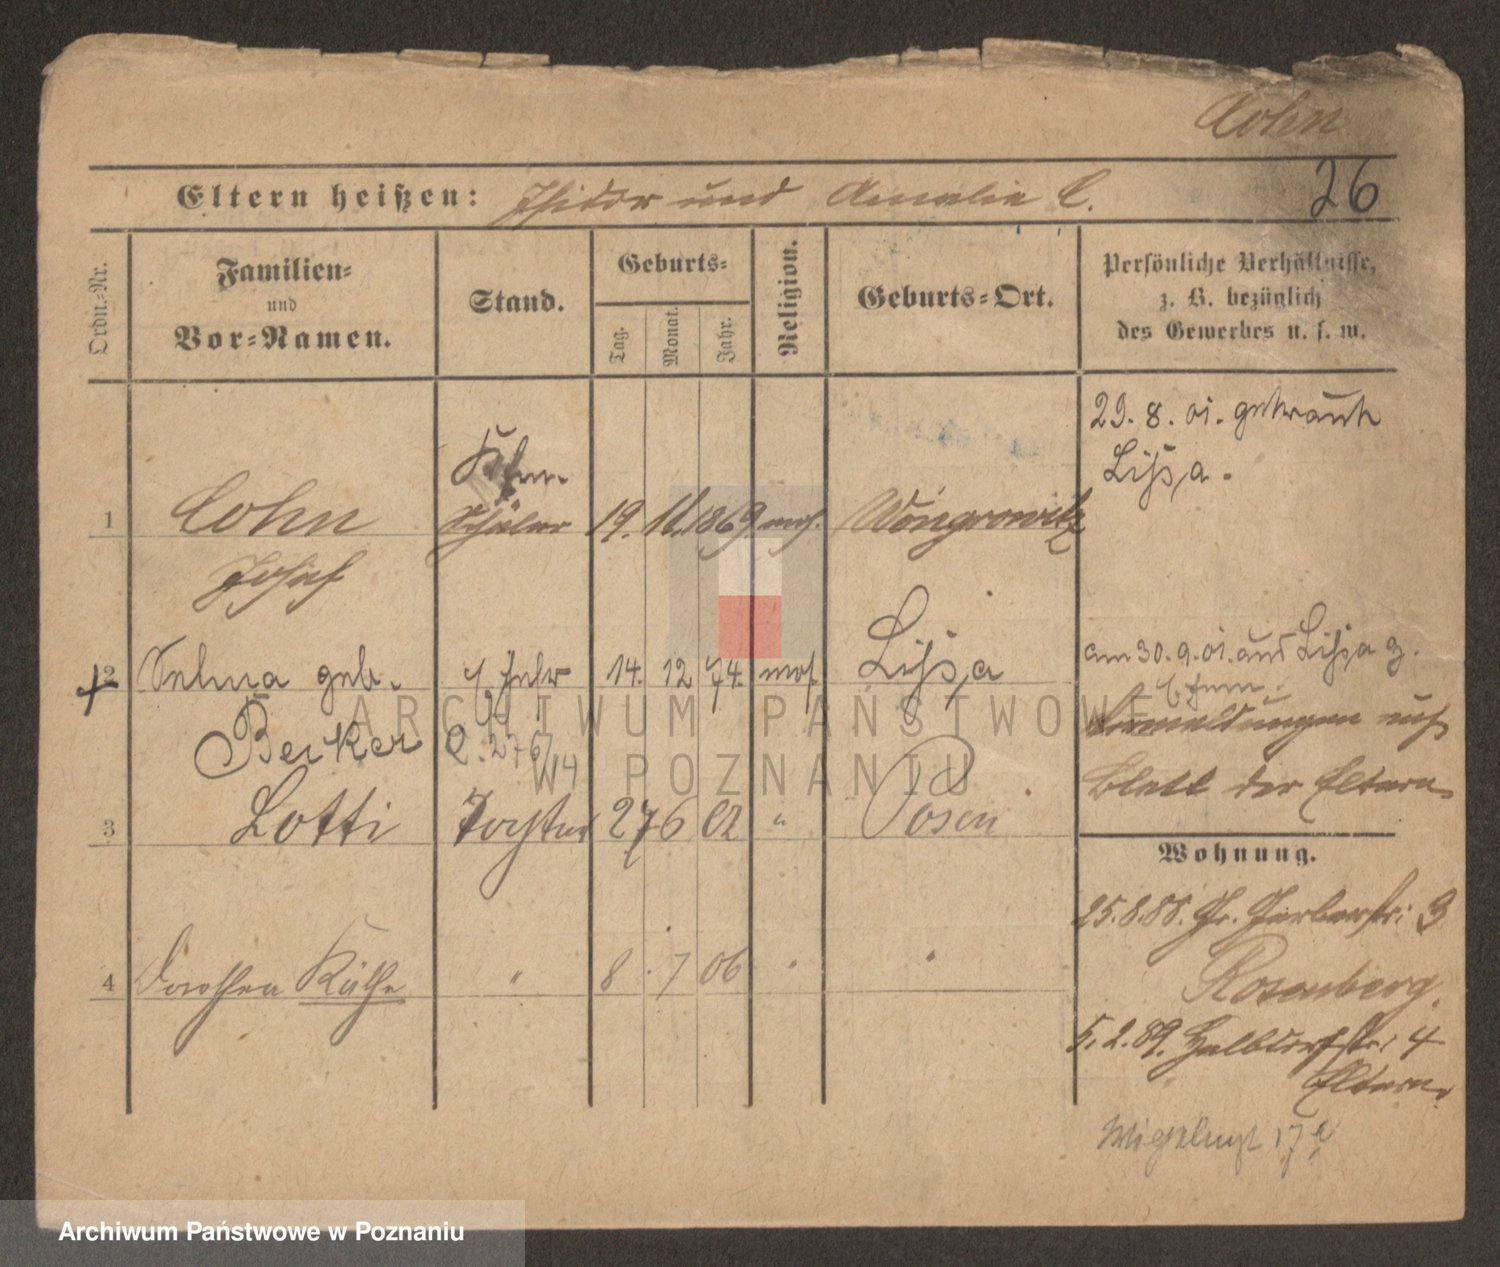 Cohn
Eltern heißen: Isidor und Amalie C.
26
Ordn.-Nr.
Familien-
und
Vor-Namen.
Stand.
Geburts-
Tag.
Monat.
Jahr.
Religion.
Geburts-Ort.
Persönliche Verhältnisse,
z. B. bezüglich
des Gewerbes u. s. w.
29. 8. 01. getraut
Lissa.
Kfm.
1 Cohn Schüler 19. 11. 1869 mos. Wongrowitz
Josef
am 30. 9. 01. aus Lissa z.
2 Selma geb. 14. 12 74. mos. Lissa
Becker
Anmeldungen auf
Blatt der Eltern
3 Lotti Tochter 27 6 02 " Posen
Wohnung.
25. 8. 88. Gr. Gerberstr: 9
Rosenberg.
4 Dorothea Käthe " 8 7 06 " "
5. 2. 89. Halbdorfstr: 4
Eltern.
ARCHIWUM PAŃSTWOWE
W POZNANIU
Archiwum Państwowe w Poznaniu